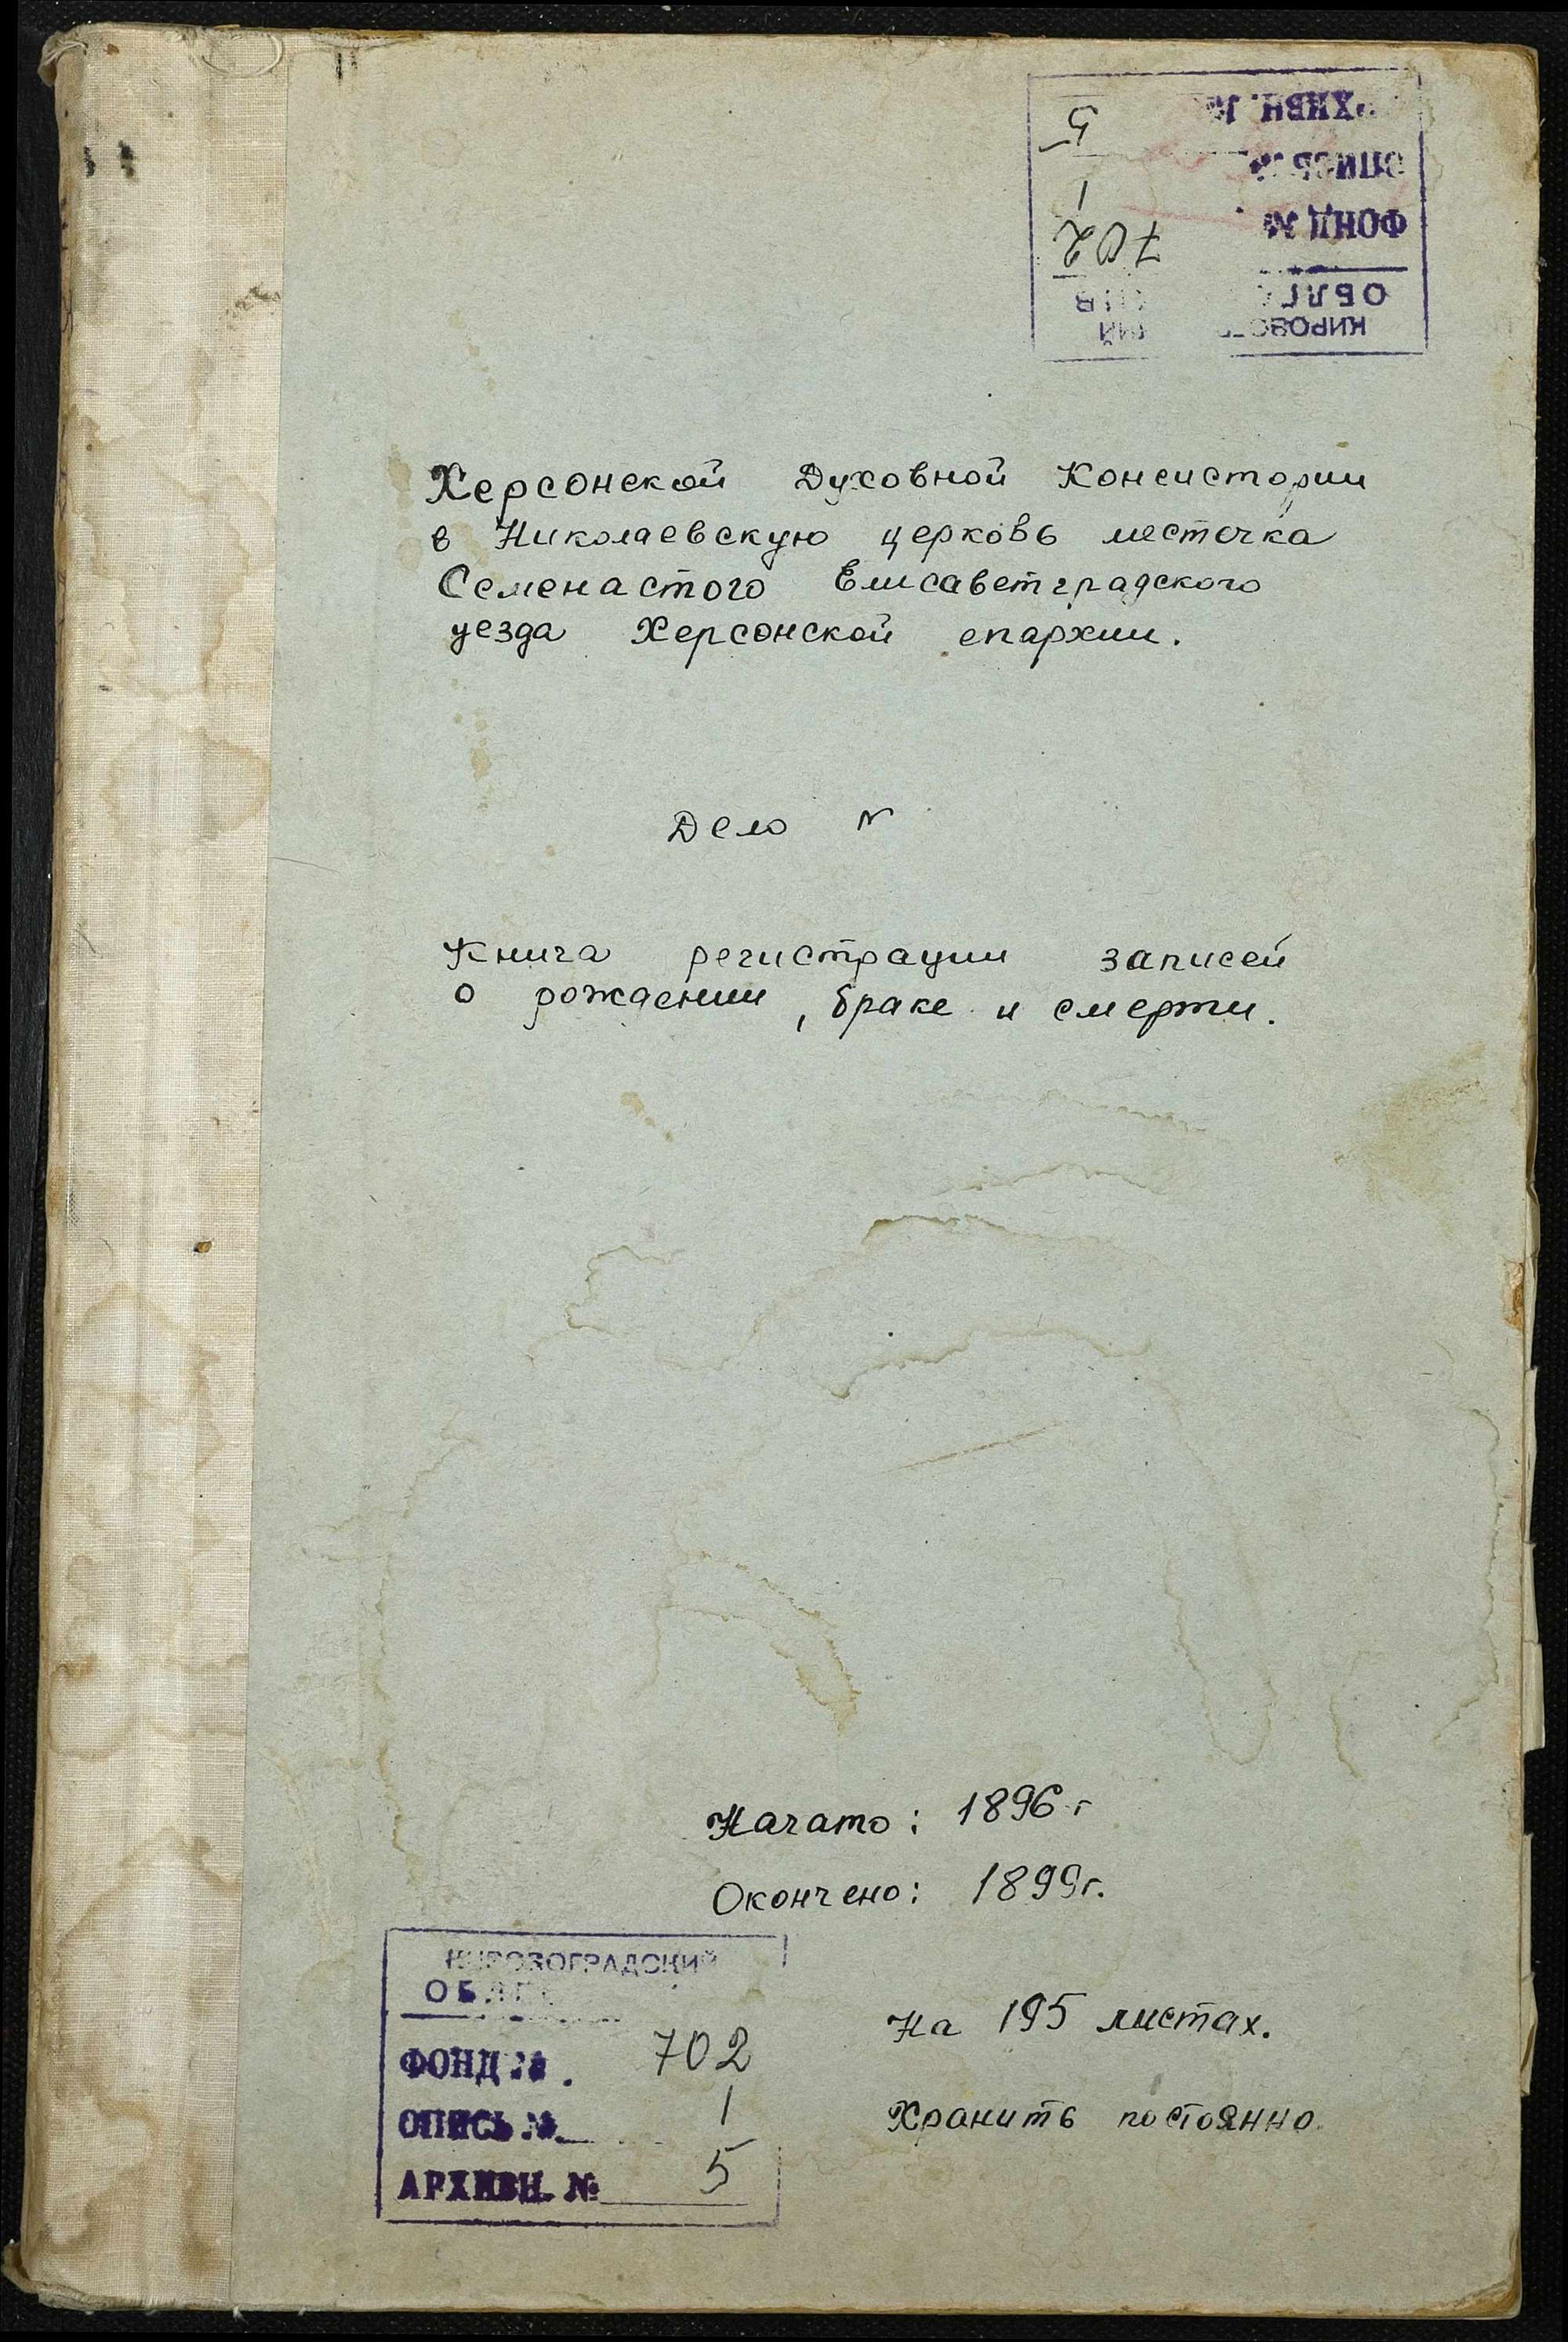 АРХИВН. №
5
ОПИСЬ №
1
ФОНД №
702
Херсонской Духовной Консистории
в Николаевскую церковь местечка
Семенастого Елисаветградского
уезда Херсонской епархии.
Дело N
Книга регистрации записей
о рождении, браке и смерти.
Начато: 1896 г
Окончено: 1899г.
КИРОВОГРАДСКИЙ
ФОНД № 702
ОПИСЬ № 1
АРХИВН. № 5
На 195 листах.
Хранить постоянно.